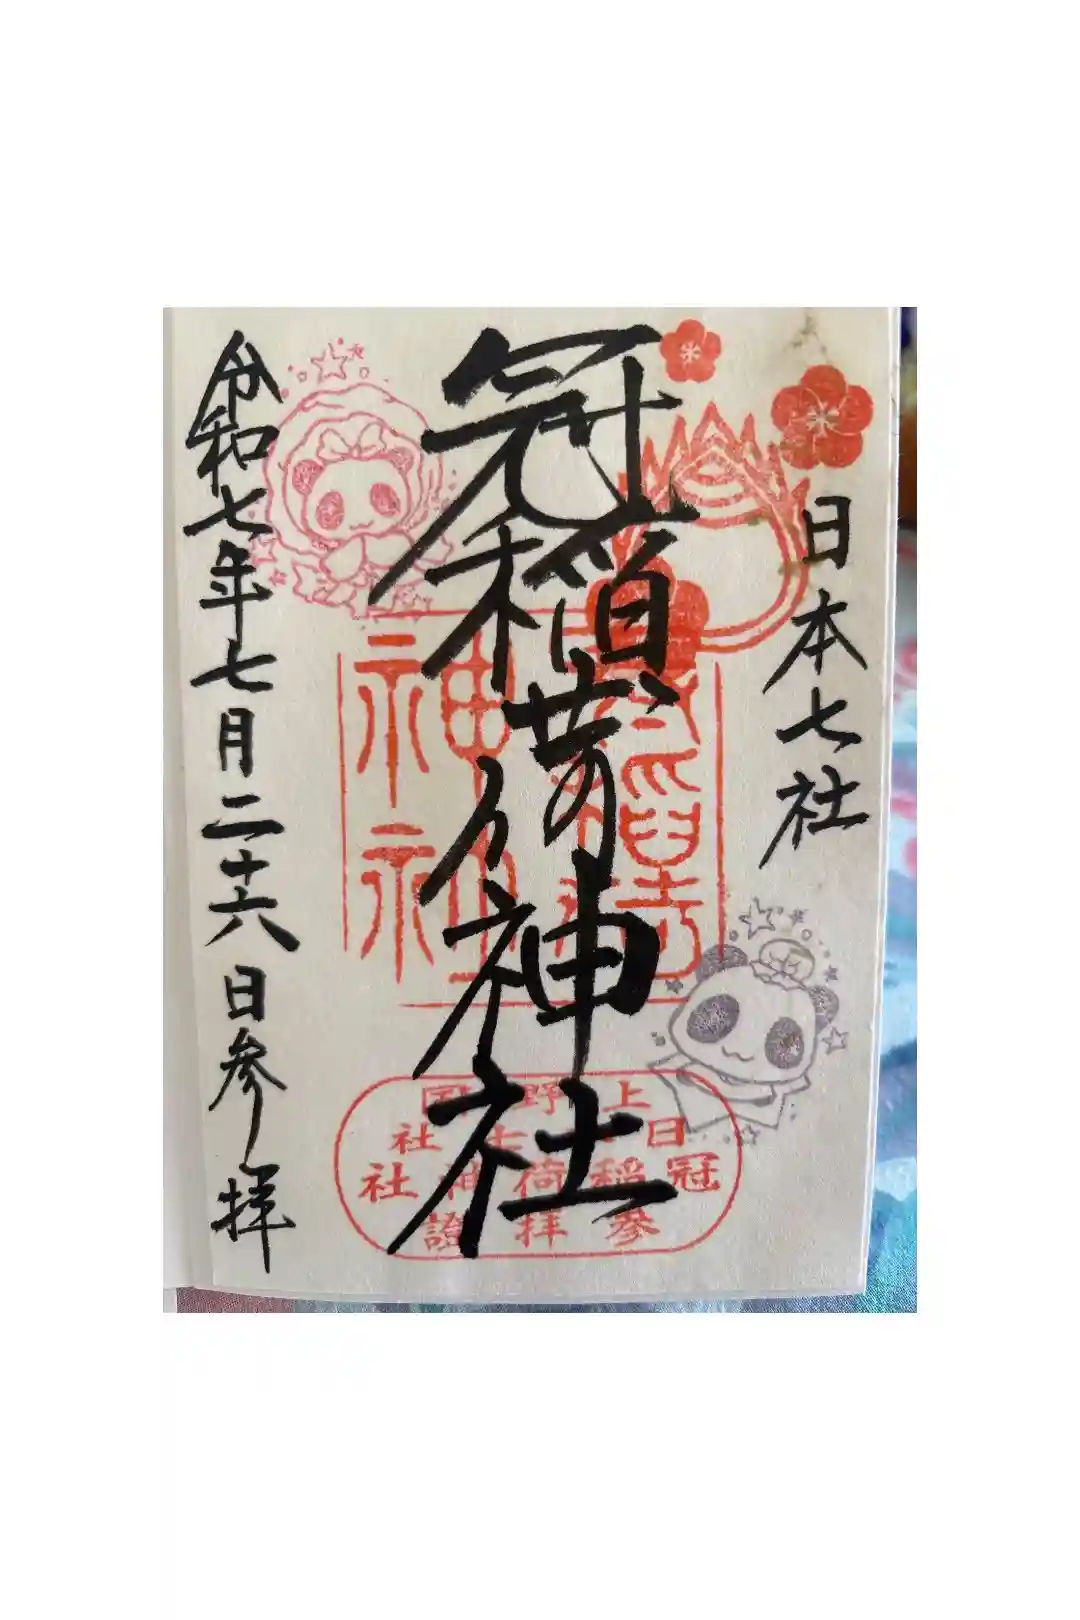 日本七社
冠稲荷神社
令和七年七月二十六日参拝
上野国
日本七社
冠稲荷神社
参拝證